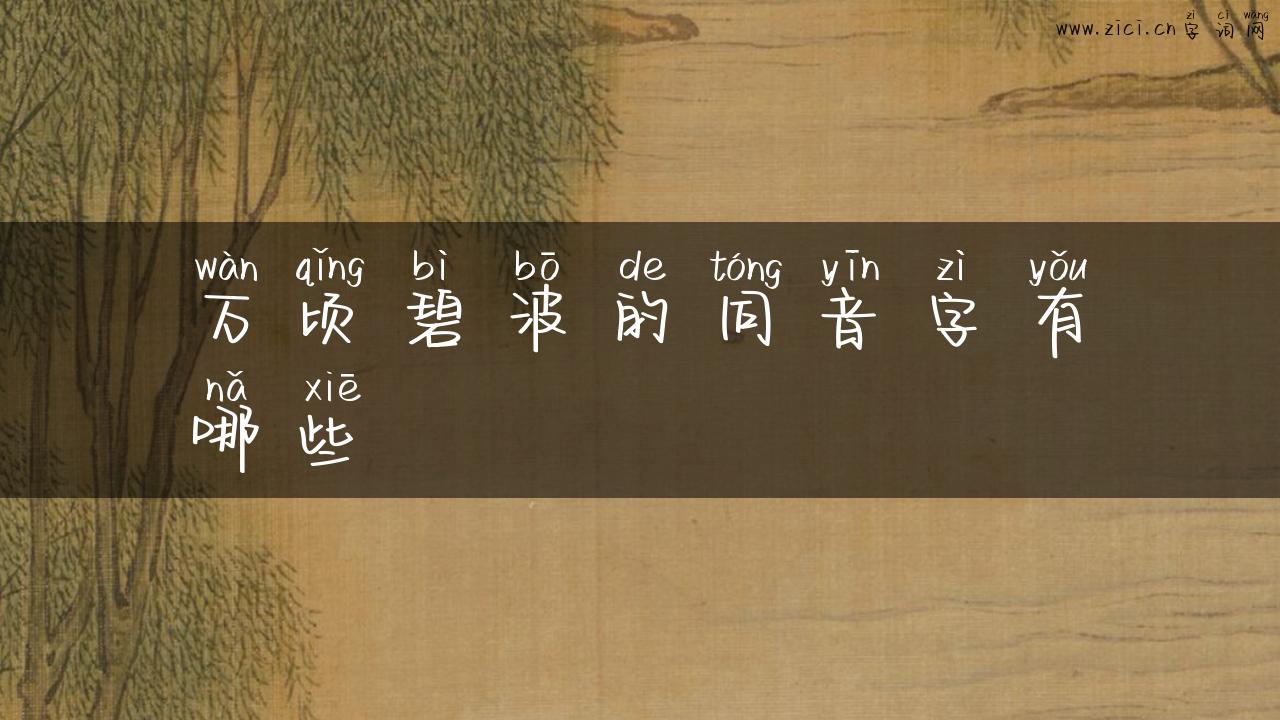 zì cí wǎng
www.zici.cn字词网
wàn qǐng bì bō de tóng yīn zì yǒu
万顷碧波的同音字有
nǎ xiē
哪些